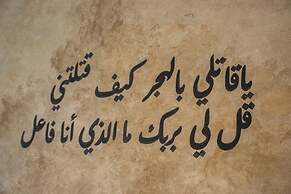 ياقاتلي بالهجر كيف قتلتني
قل لي بربك ما الذي أنا فاعل